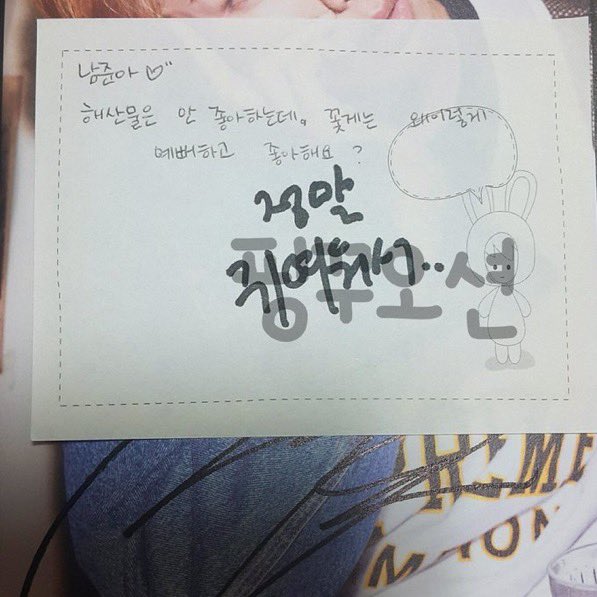 남준아 ♡"
해산물은 안 좋아하는데, 꽃게는 왜이렇게
예뻐하고 좋아해요?
정말
귀여워서..
핑쿠오션
HEME
MADON